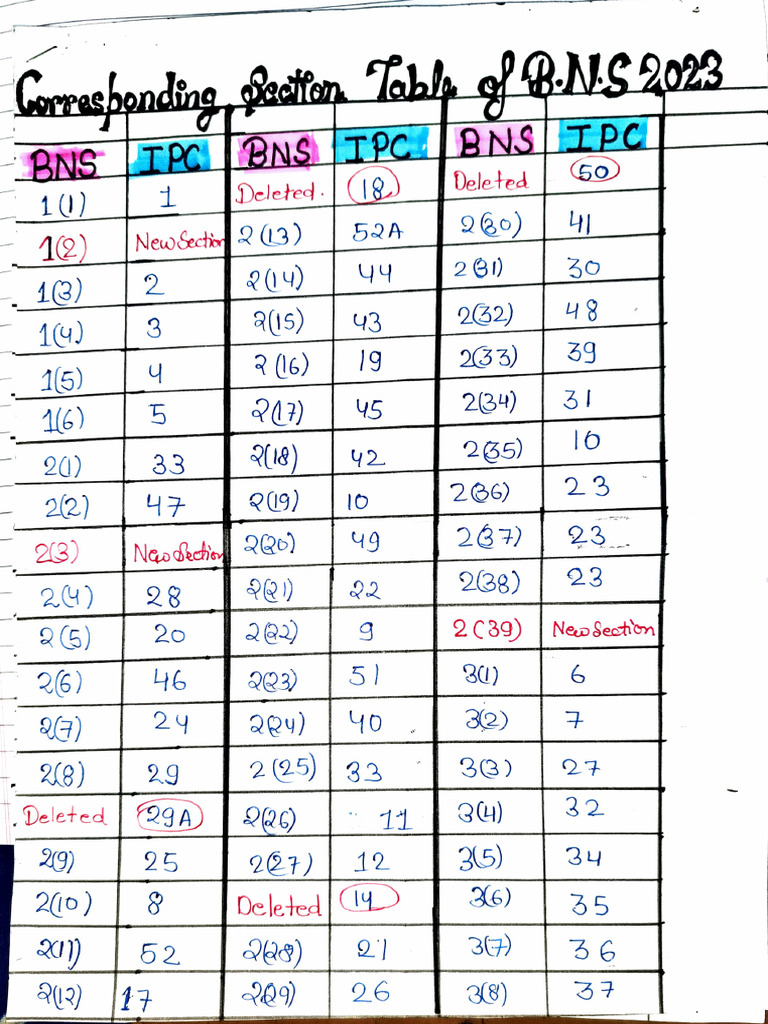 Corresponding Section Table of B.N.S 2023
BNS IPC BNS IPC BNS IPC
1(1) 1 Deleted. 18 Deleted 50
1(2) New Section 2(13) 52A 2(30) 41
1(3) 2 2(14) 44 2(31) 30
1(4) 3 2(15) 43 2(32) 48
1(5) 4 2(16) 19 2(33) 39
1(6) 5 2(17) 45 2(34) 31
2(1) 33 2(18) 42 2(35) 10
2(2) 47 2(19) 10 2(36) 23
2(3) New Section 2(20) 49 2(37) 23
2(4) 28 2(21) 22 2(38) 23
2(5) 20 2(22) 9 2(39) New Section
2(6) 46 2(23) 51 3(1) 6
2(7) 24 2(24) 40 3(2) 7
2(8) 29 2(25) 33 3(3) 27
Deleted 29A 2(26) 11 3(4) 32
2(9) 25 2(27) 12 3(5) 34
2(10) 8 Deleted 14 3(6) 35
2(11) 52 2(28) 21 3(7) 36
2(12) 17 2(29) 26 3(8) 37